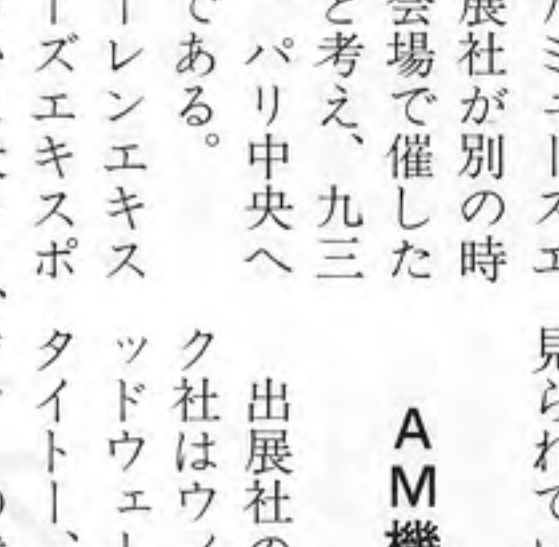 ミューズエ
展社が別の時
会場で催した
と考え、九三
パリ中央へ
である。
ーレンエキス
ーズエキスポ
見られてい
AM機
出展社の
ク社はウィ
ッドウェ
タイトー、